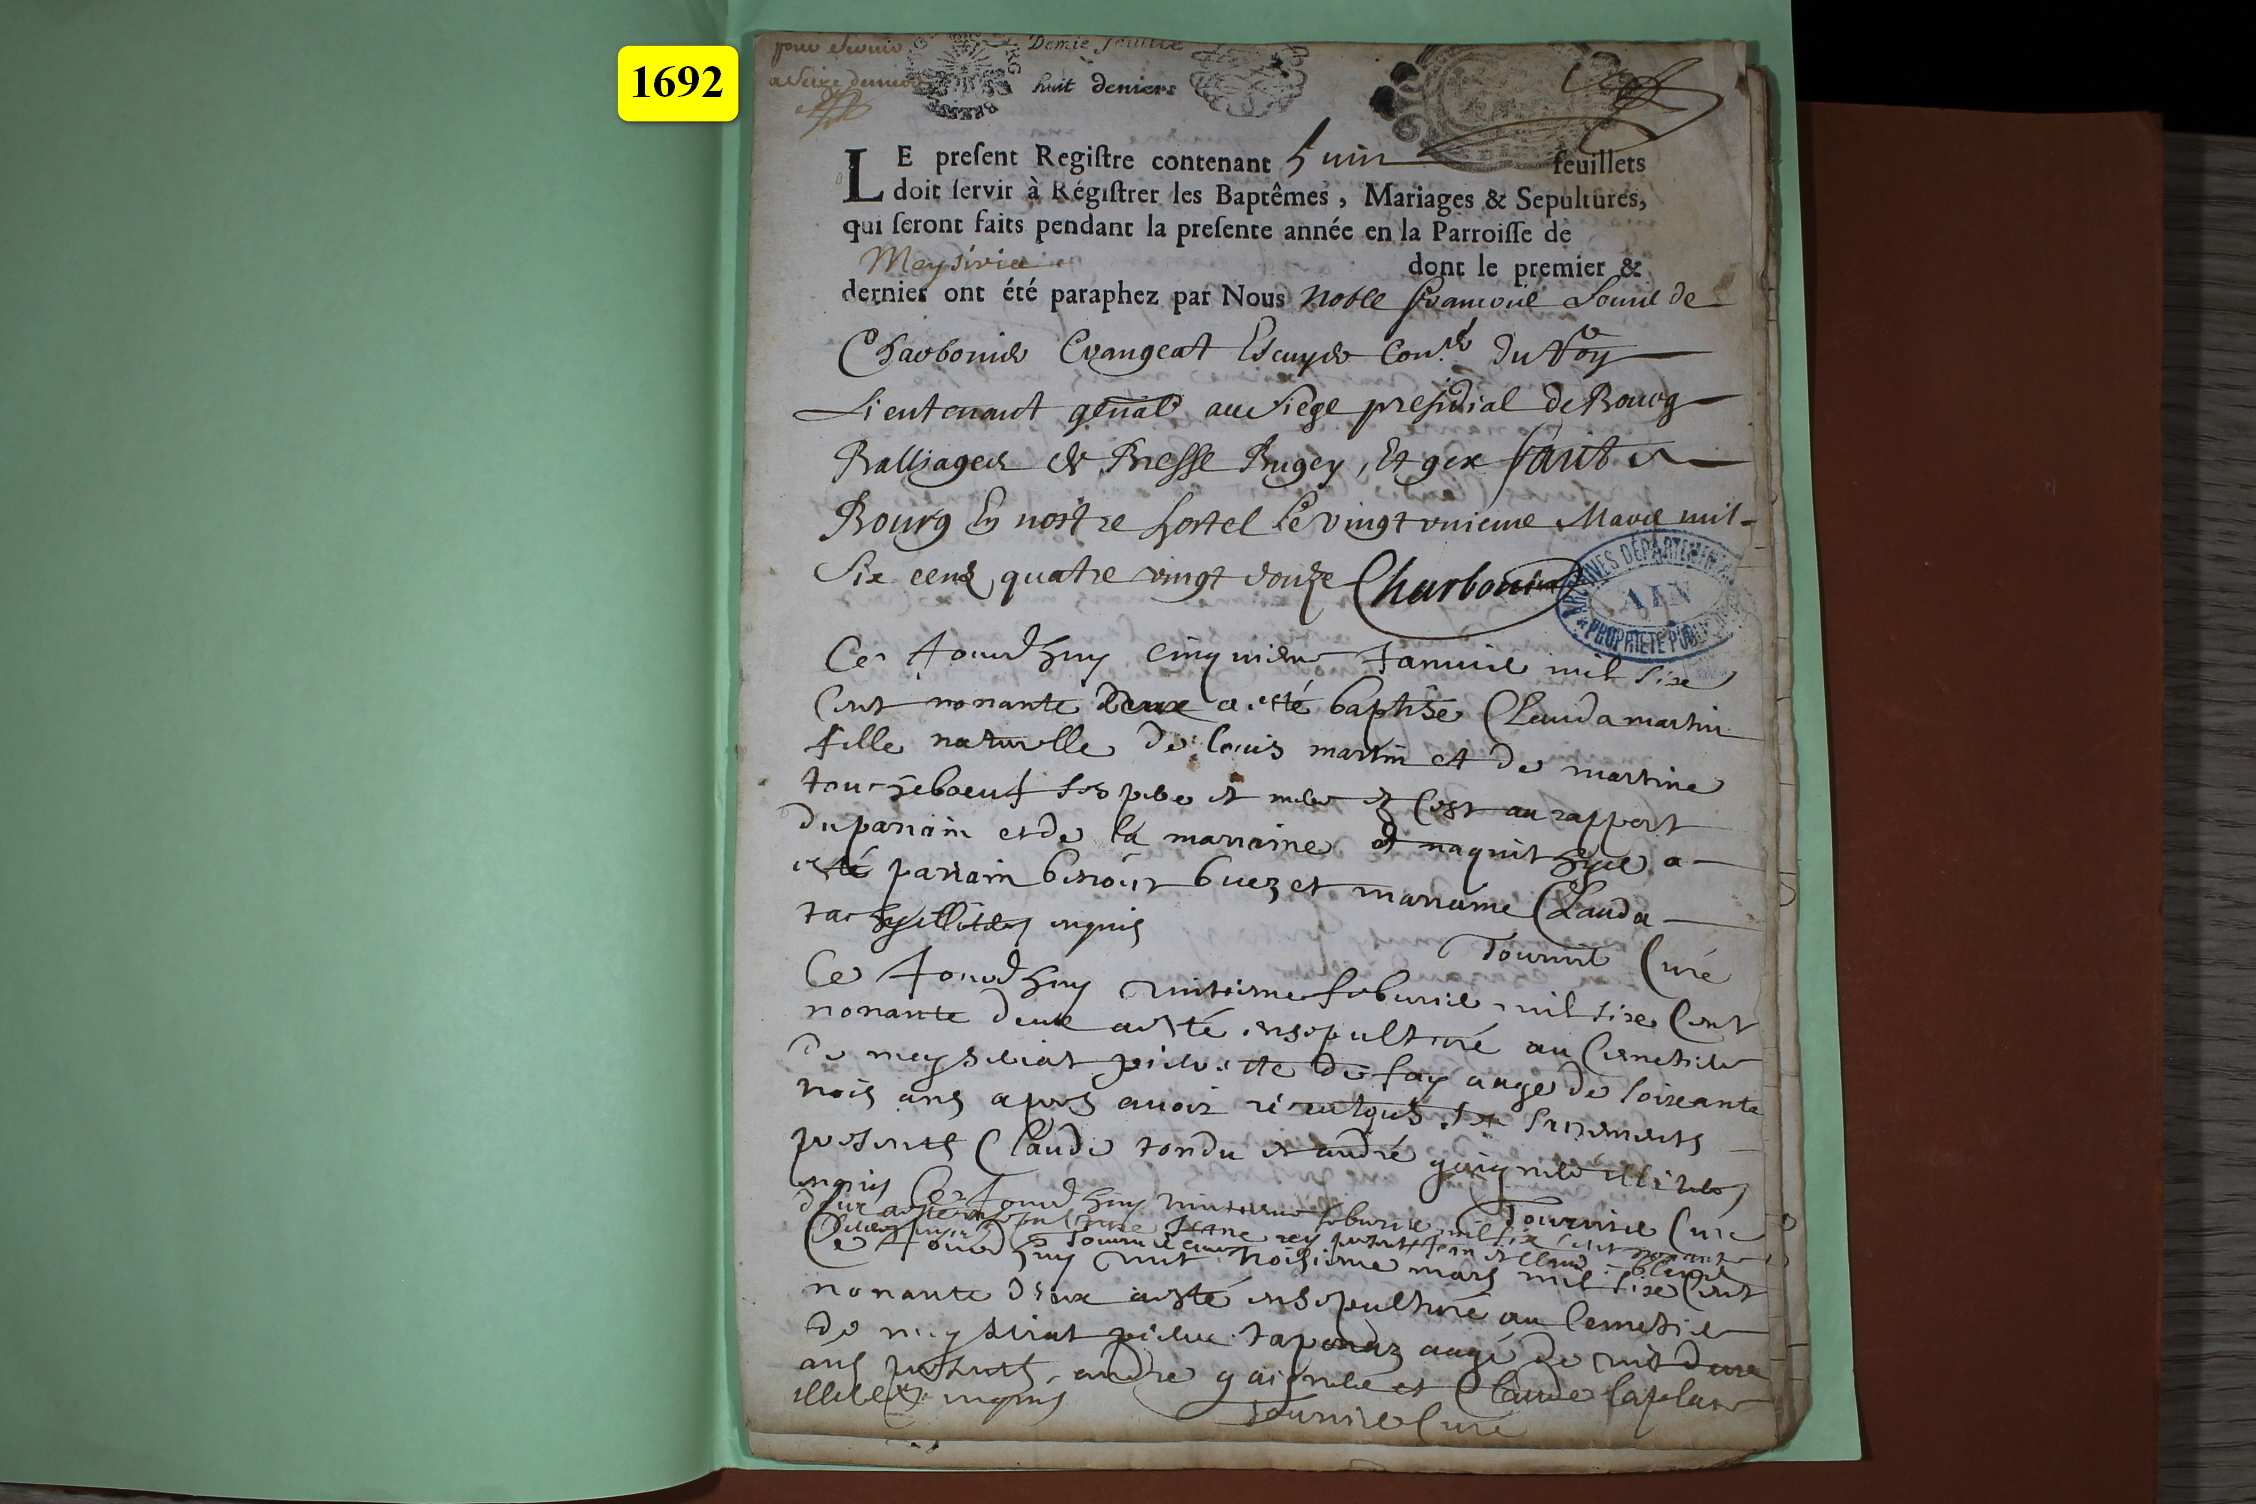 1692
pour servir
a seize deniers
Demie feuille
huit deniers
LE preſent Regiſtre contenant huit feuillets
doit ſervir à Régiſtrer les Baptêmes, Mariages & Sepultures,
qui ſeront faits pendant la preſente année en la Parroiſſe de
Meysiria dont le premier &
dernier ont été paraphez par Nous Noble françois Louis de
Charbonier Crangeat Escuyer Con.er du Roy
Lieutenant gnãl au siege presidial de Bourg
Balliages de Bresse Bugey, Et gex fait a
Bourg En nostre hostel le vingt unieme Mars mil
Six cens quatre vingt douze Charbonier
ARCHIVES DÉPARTEMENTALES
AIN
PROPRIÉTÉ PUBLIQUE
Ce Jourdhuy cinquieme Januier mil six
Cent nonante deux a esté baptisée Clauda martin
fille naturelle de louis martin et de martine
tournéboeuf ses pere et mere et Cest au rapport
du parrain et de la marraine et naquit hyer a
esté parrain benoit buez et marraine Clauda
enquis
Tournier Curé
Ce Jourdhuy huitieme feburier mil six Cent
nonante deux a esté ensepulturé au Cemetiere
de meyseriat pierrette du fay aagé de soixante
trois ans apres auoir receu tous ses sacrements
presents Claude tondu et andré guignier illiteres
enquis Ce Jourdhuy huitieme feburier mil six cent nonante
Tournier Curé
deux a esté ensepulturé Jeane rey present Jean et Claude
Tournier curé
Ce Jourdhuy vint troisieme mars mil six Cent
nonante deux a esté ensepulturé au Cemetiere
de meyseriat pierre taponaz aagé de vint deux
ans presents andre guignier et Claude laplace
illiteres enquis
Tournier Curé